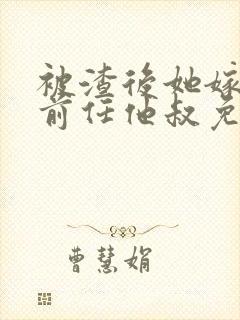 被渣後她嫁
前任他叔免
曹慧娟